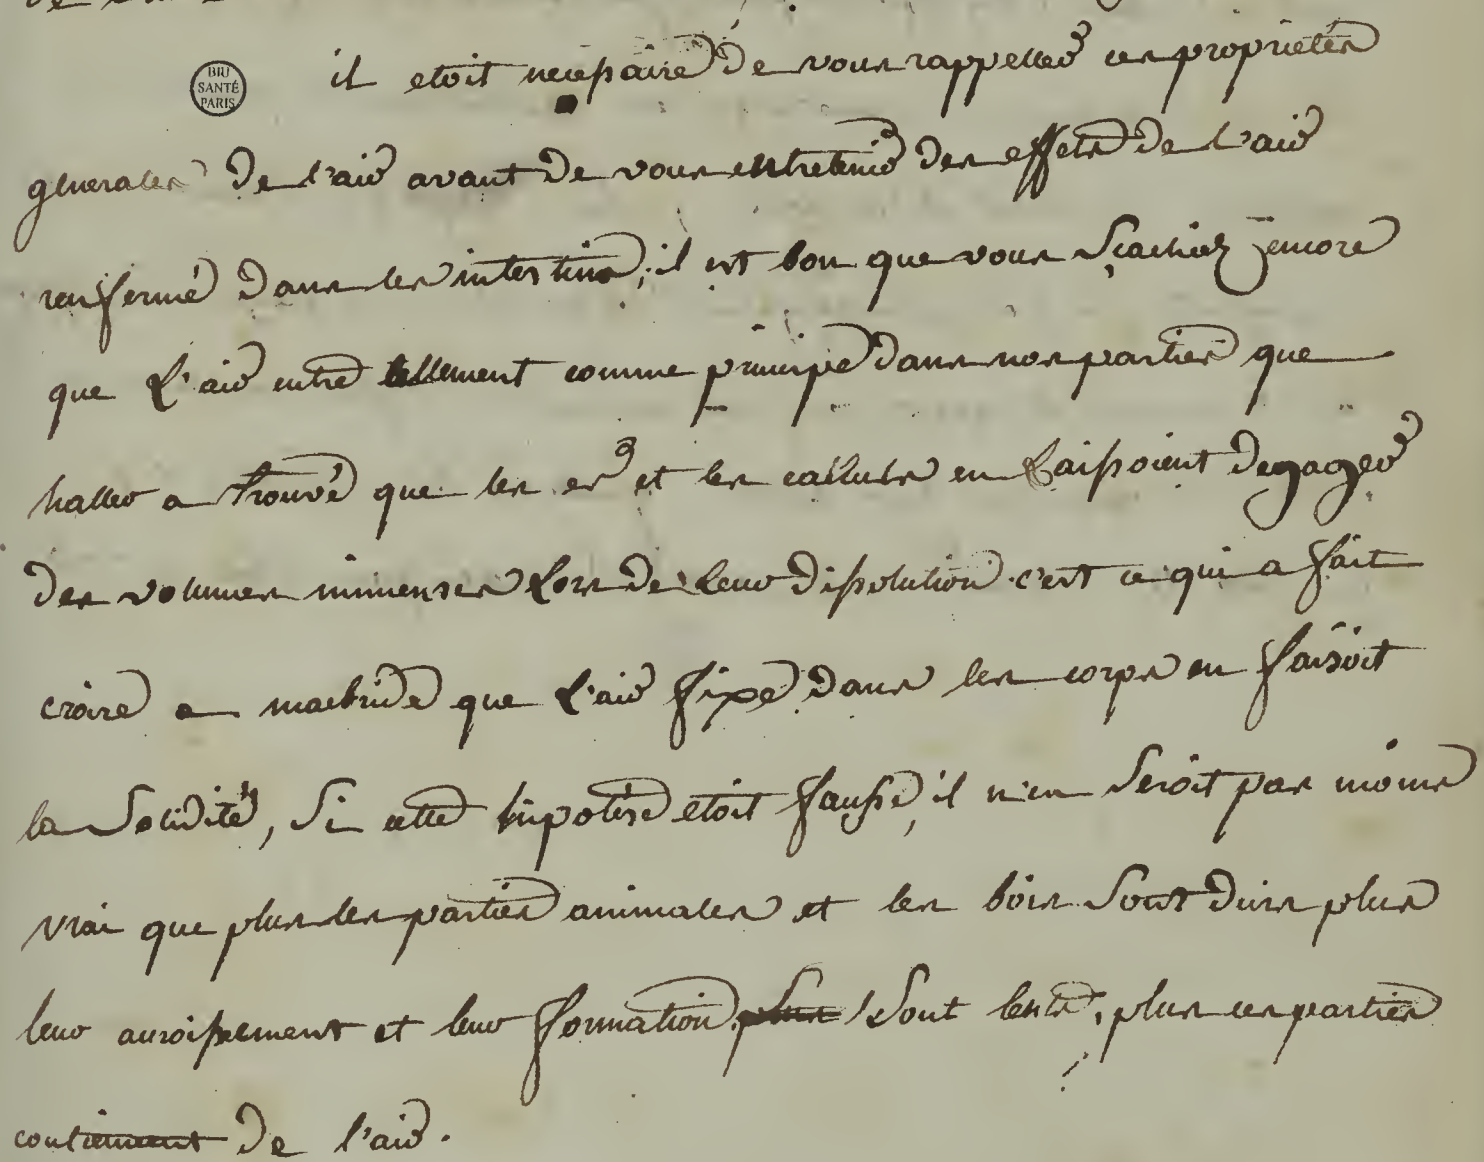 il etoit necessaire de vous rappeller ces proprietés
BIU
SANTÉ
PARIS
generales de l'air avant de vous entretenir des effets de l'air
renfermé dans les intestins; il est bon que vous sçachiez encore
que L'air entre tellement comme principe dans nos parties que
haller a trouvé que les os et les calculs en Laissoient degager
des volumes immenses Lors de leur dissolution. c'est ce qui a fait
croire a macbride que L'air fixe dans les corps en faisoit
la Solidité, Si cette hipotése etoit fausse, il n'en Seroit pas moins
vrai que plus les parties animales et les bois Sont durs plus
leur auroissement et leur formation plus Sont lents, plus ces parties
contiennent de l'air.